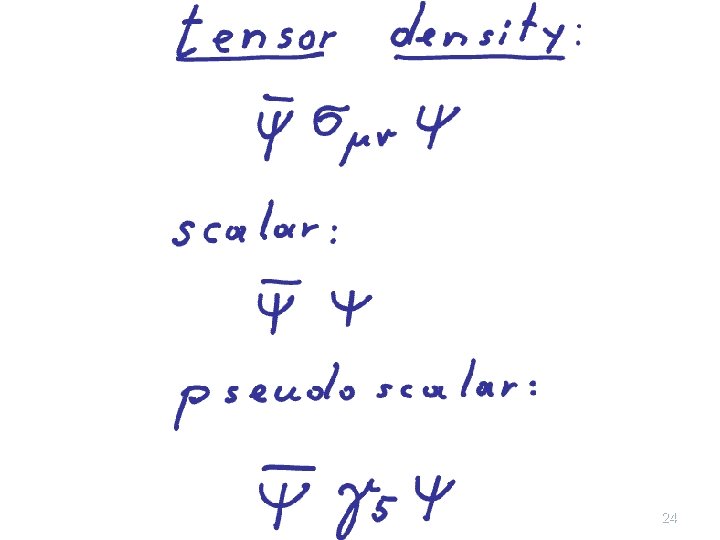 tensor density:
ψ̄ σμν ψ
scalar:
ψ̄ ψ
pseudoscalar:
ψ̄ γ5 ψ
24